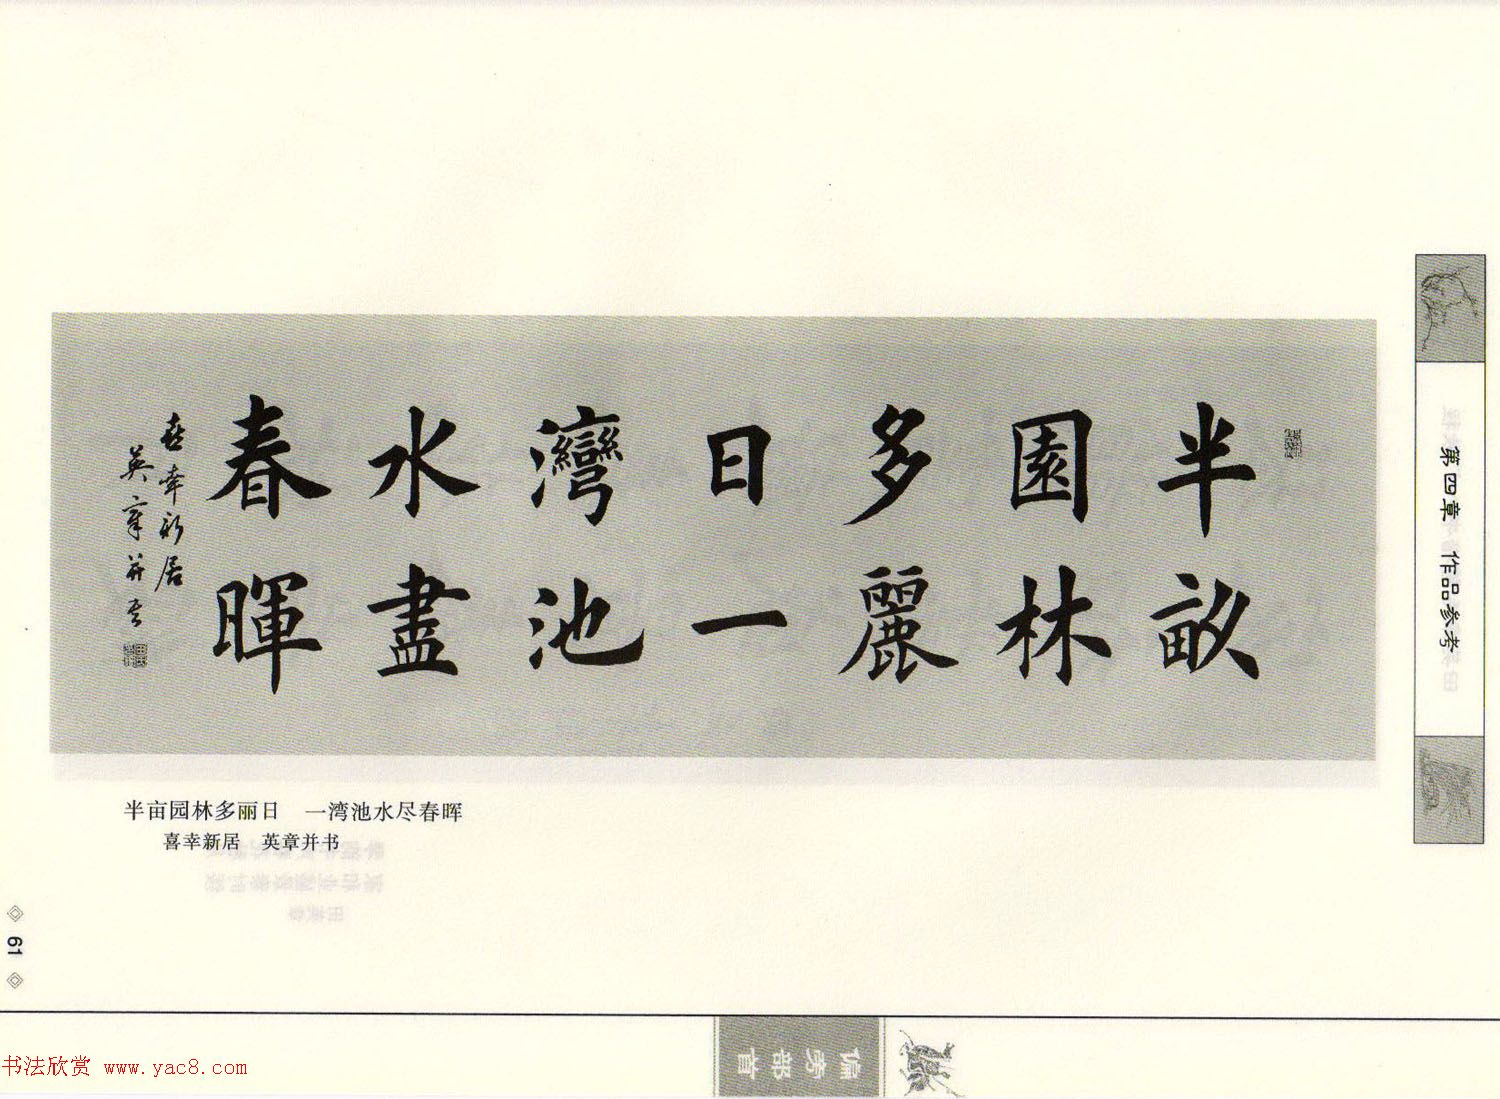 半畝
園林
多麗
日一
灣池
水盡
春暉
喜幸新居
英章并书
半亩园林多丽日 一湾池水尽春晖
喜幸新居 英章并书
第四章 作品参考
61
偏旁部首
书法欣赏 www.yac8.com